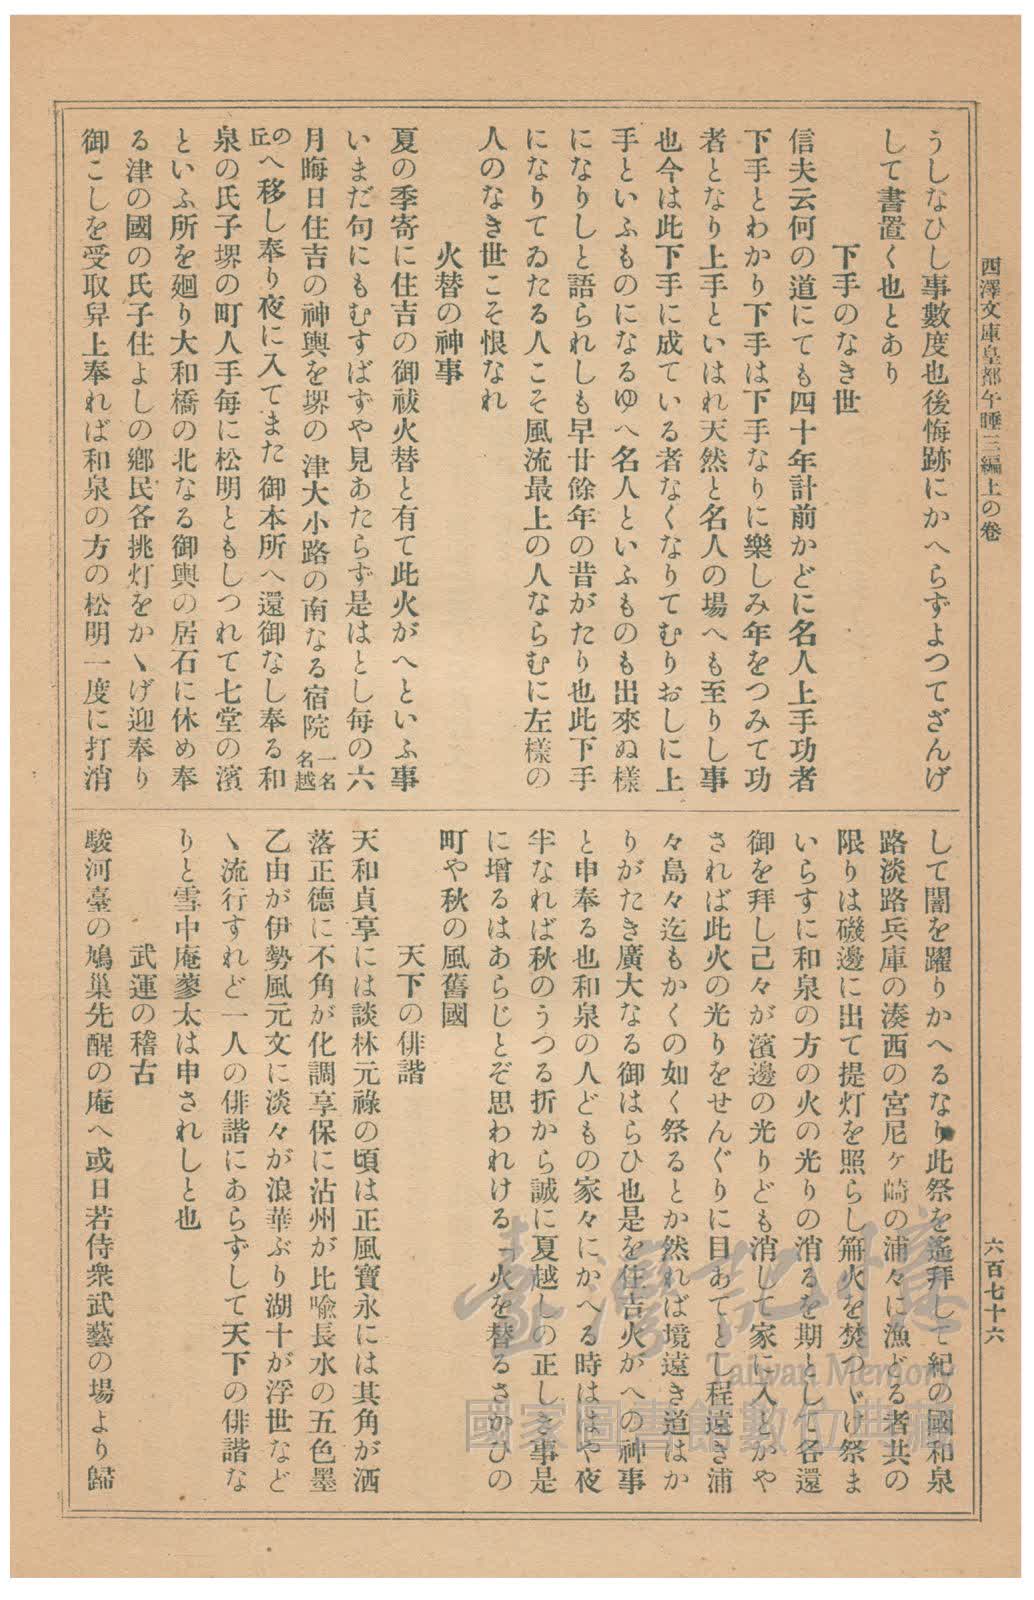 西澤文庫皇都午睡三編上の卷
六百七十六
うしなひし事數度也後悔跡にかへらずよつてざんげ
して書置く也とあり
下手のなき世
信夫云何の道にても四十年計前かどに名人上手功者
下手とわかり下手は下手なりに樂しみ年をつみて功
者となり上手といはれ天然と名人の場へも至りし事
也今は此下手に成ている者なくなりてむりおしに上
手といふものになるゆへ名人といふものも出來ぬ樣
になりしと語られしも早廿餘年の昔がたり也此下手
になりてゐたる人こそ風流最上の人ならむに左樣の
人のなき世こそ恨なれ
火替の神事
夏の季寄に住吉の御祓火替と有て此火がへといふ事
いまだ句にもむすばずや見あたらず是はとし每の六
月晦日住吉の神輿を堺の津大小路の南なる宿院一名名越
の丘へ移し奉り夜に入てまた御本所へ還御なし奉る和
泉の氏子堺の町人手每に松明ともしつれて七堂の濱
といふ所を廻り大和橋の北なる御輿の居石に休め奉
る津の國の氏子住よしの鄕民各挑灯をかゝげ迎奉り
御こしを受取舁上奉れば和泉の方の松明一度に打消
して闇を躍りかへるなり此祭を遙拜して紀の國和泉
路淡路兵庫の湊西の宮尼ヶ崎の浦々に漁どる者共の
限りは磯邊に出て提灯を照らし篝火を焚つゞけ祭ま
いらすに和泉の方の火の光りの消るを期として各還
御を拜し己々が濱邊の光りども消して家に入とかや
されば此火の光りをせんぐりに目あてとし程遠き浦
々島々迄もかくの如く祭るとか然れば境遠き道はか
りがたき廣大なる御はらひ也是を住吉火がへの神事
と申奉る也和泉の人どもの家々にかへる時ははや夜
半なれば秋のうつる折から誠に夏越しの正しき事是
に增るはあらじとぞ思われける「火を替るさかひの
町や秋の風舊國
天下の俳諧
天和貞享には談林元祿の頃は正風寶永には其角が洒
落正德に不角が化調享保に沾州が比喩長水の五色墨
乙由が伊勢風元文に淡々が浪華ぶり湖十が浮世など
ゝ流行すれど一人の俳諧にあらずして天下の俳諧な
りと雪中庵蓼太は申されしと也
武運の稽古
駿河臺の鳩巢先醒の庵へ或日若侍衆武藝の場より歸
臺灣記憶
Taiwan Memory
國家圖書館數位典藏